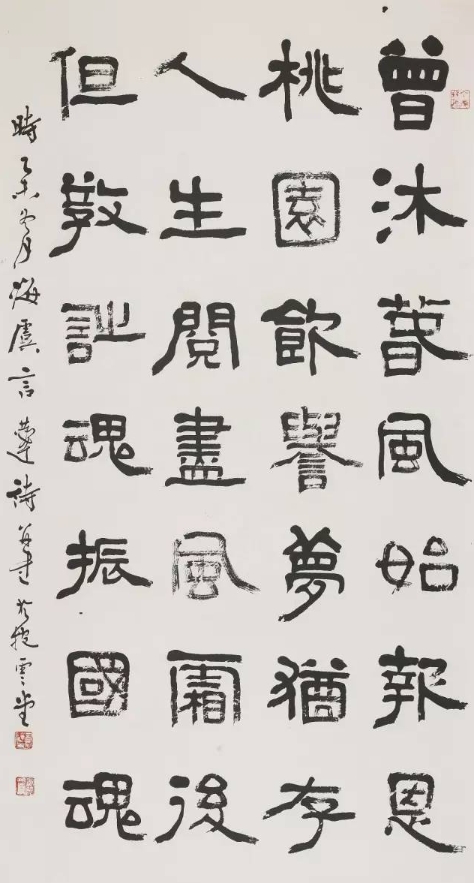 曾沐春風始報恩
桃園飲譽夢猶存
人生閱盡風霜後
但教詩魂振國魂
時乙未冬月海虞言恭達詩並書於抱雲堂